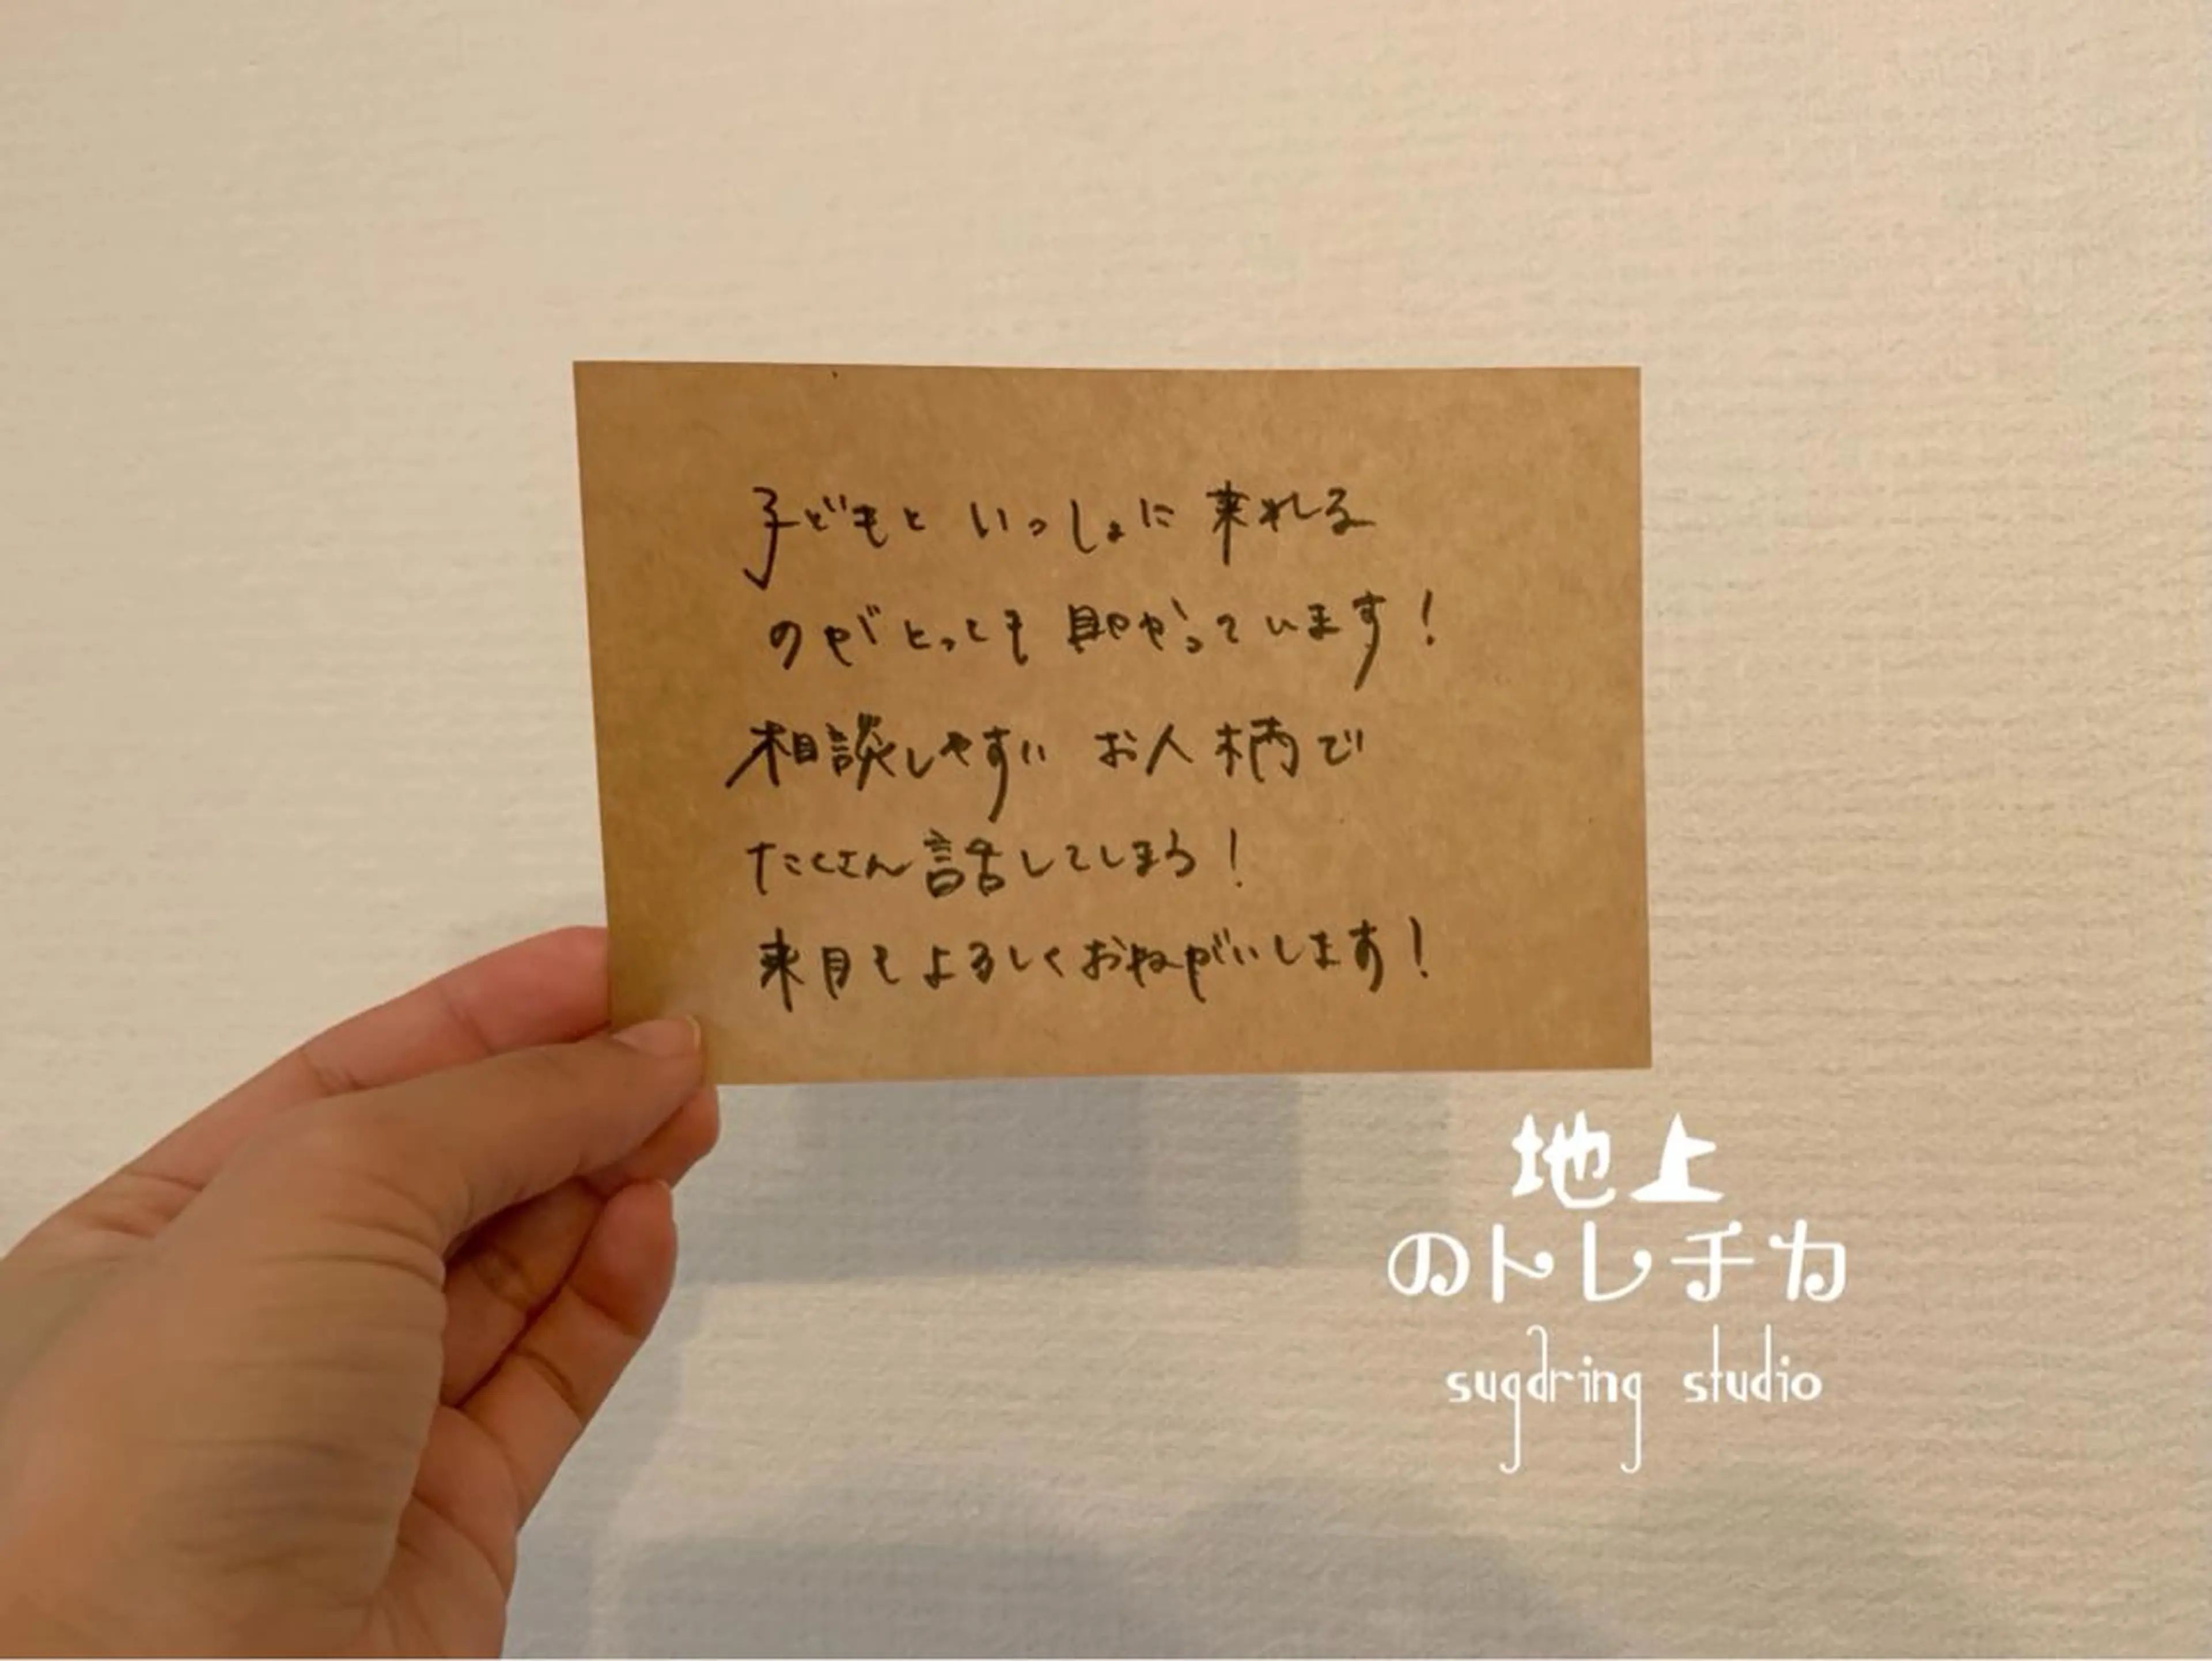 子どもと いっしょに 来れる
のがとっても 助かっています!
相談しやすい お人柄で
たくさん話してしまう!
来月もよろしくおねがいします!
地上
のトレチカ
sugdring studio